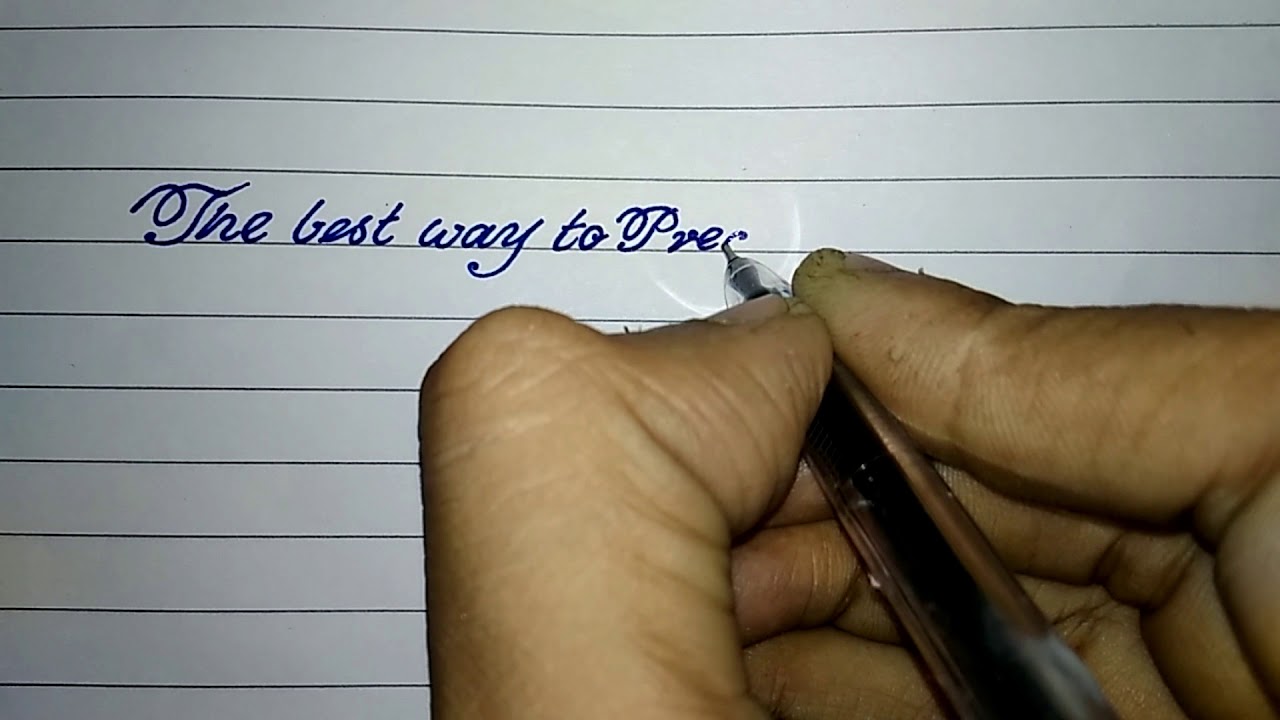 The best way to Pre